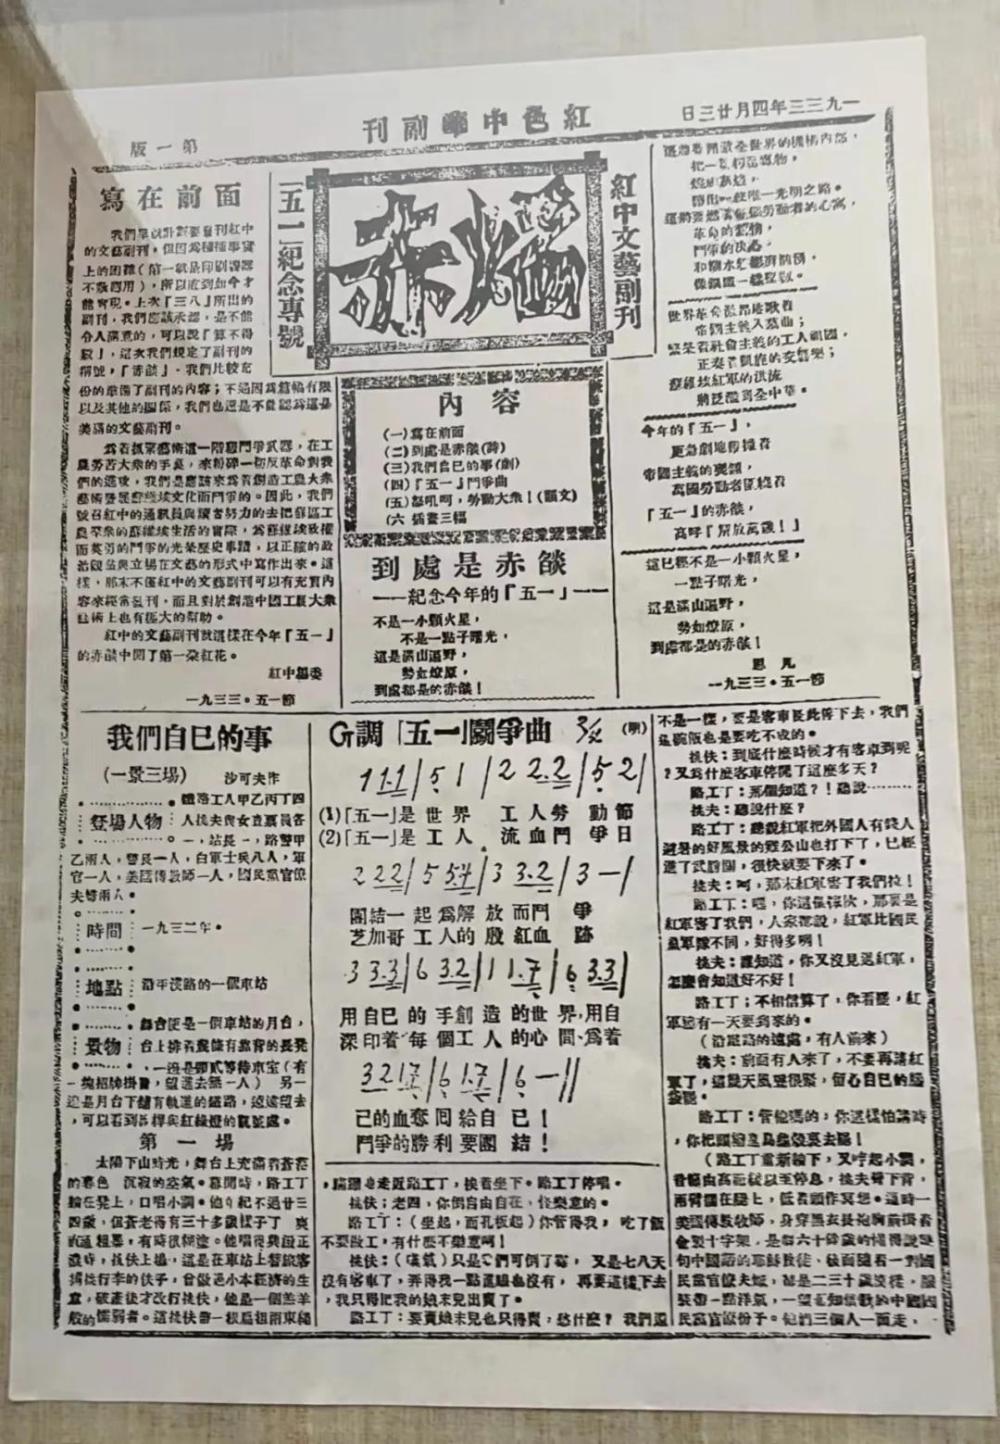 日三廿月四年三三九一
刊副華中色紅
版一第
寫在前面
我們早就計劃要發刊紅中
的文藝副刊，但因為種種事實
上的困難（第一就是印刷機器
不敷應用），所以遲到如今才
能實現。上次『三八』所出的
副刊，我們應該承認，是不能
令人滿意的，可以說『算不得
數』，這次我們規定了副刊的
名號，『赤燄』，我們比較充
份的準備了副刊的內容；不過因為篇幅有限
以及其他的關係，我們也還是不能認為這是
美滿的文藝副刊。
為着抓緊藝術這一階級鬥爭武器，在工
農勞苦大眾的手裏，來粉碎一切反革命對我
們的進攻，我們是應該來為着創造工農大眾
藝術發展蘇維埃文化而鬥爭的。因此，我們
號召紅中的通訊員與讀者努力的去把蘇區工
農羣眾的蘇維埃生活的實際，為蘇維埃政權
而英勇的鬥爭的光榮歷史事蹟，以正確的政
治觀點與立場在文藝的形式中寫作出來。這
樣，那末不僅紅中的文藝副刊可以有充實內
容來經常發刊，而且對於創造中國工農大眾
藝術上也有極大的幫助。
紅中的文藝副刊就這樣在今年『五一』
的赤燄中開了第一朵紅花。
紅中編委
一九三三·五一節
五一紀念專號
赤燄
紅中文藝副刊
內容
(一)寫在前面
(二)到處是赤燄(詩)
(三)我們自己的事(劇)
(四)『五一』鬥爭曲
(五)怒吼呵，勞動大眾！(韻文)
(六 插畫三幅
到處是赤燄
——紀念今年的『五一』——
不是一小顆火星，
不是一點子曙光，
這是滿山遍野，
勢如燎原，
到處都是的赤燄！
世界革命
帝國主義入墓曲；
社會主義的工人祖國，
正奏着凱旋的交響樂；
蘇維埃紅軍的洪流
將泛濫到全中華。
今年的『五一』，
更急劇地震撼着
帝國主義的喪鐘，
萬國勞動者
『五一』的赤燄，
高呼『解放萬歲！』
這已經不是一小顆火星，
一點子曙光，
這是滿山遍野，
勢如燎原，
到處都是的赤燄！
思凡
一九三三·五一節
我們自己的事
(一景三場) 沙可夫作
登場人物
鐵路工人甲乙丙丁四
人挑夫與女查票員各
一，站長一，路警甲
乙兩人，警長一人，白軍士兵八人，軍
官一人，美國傳教師一人，國民黨官僚
夫婦兩人。
時間 一九三二年。
地點 沿平漢路的一個車站
景物
舞台便是一個車站的月台，
台上排着幾條有靠背的長凳
，一邊是頭貳等待車室（有
一塊招牌掛着，望進去無一人）另一
邊是月台下鋪有軌道的鐵路，遠遠望去
，可以看到吊桿與紅綠燈的號誌處。
第一場
太陽下山時光，舞台上充滿着蒼茫
的暮色 沉寂的空氣。幕開時，路工丁
躺在凳上，口唱小調。他年紀不過廿三
四歲，但蒼老得有三十多歲樣子了 爽
直粗暴，有時很糊塗。他唱得興致正
濃時，挑伕上場，這是在車站上替旅客
捎挑行李的伕子，曾做過小本經濟的生
意，破產後才改行挑伕，他是一個羔羊
般的懦弱者。這挑伕帶一根扁担兩束繩
G調「五一」鬪爭曲 3/2 (明)
1 1.1 | 5 1 | 2 2 2.2 | 5 2 |
(1)「五一」是世界 工人勞 動節
(2)「五一」是工人 流血鬥 爭日
2 2 2 | 5 5.4 | 3 3.2 | 3 — |
團結一起為解放而鬥 爭
芝加哥工人的殷紅血 跡
3 3.3 | 6 3.2 | 1 1.7 | 6 3.3 |
用自己的手創造的世界，用自
深印着每個工人的心間、為着
3 2 1 7 | 6 1.7 | 6 — ||
己的血奪回給自己！
鬥爭的勝利要團結！
，躊躇地走近路工丁，挨着坐下。路工丁停唱。
挑伕：老四，你倒自由自在，怪樂意的。
路工丁：（坐起，面孔板起）你管得我，吃了飯
不要做工，有什麼不樂意啊！
挑伕：（嘆氣）只是它們可倒了霉， 又是七八天
沒有客車了，弄得我一點進賬也沒有， 再要這樣下去
，我只得把我的娘末兒出賣了。
路工丁：要賣娘末兒也只得賣，愁什麼？ 我們還
不是一樣，要是客車長此停下去，我們
這碗飯也是要吃不成的。
挑伕：到底什麼時候才有客車到呢
？又為什麼客車停開了這麼多天？
路工丁：那個知道？！聽說………
挑夫：聽說什麼？
路工丁：聽說紅軍把外國人有錢人
避暑的好風景的雞公山也打下了，已經
進了武勝關，很快就要下來了。
挑夫：呵，那末紅軍害了我們拉！
路工丁：嘿，你這個傢伙，那裏是
紅軍害了我們，人家都說，紅軍比國民
黨軍隊不同，好得多咧！
挑夫：誰知道，你又沒見過紅軍，
怎麼會知道好不好！
路工丁：不相信算了，你看罷，紅
軍總有一天要到來的。
（沿鐵路的遠處，有人前來）
挑夫：前面有人來了，不要再講紅
軍了，這幾天風聲很緊，留心自己的腦
袋罷。
路工丁：管他媽的，你這樣怕講時
，你把頭縮進烏龜殼裏去罷！
（路工丁重新躺下，又哼起小調，
音韻由高漸低以至停息，挑夫彎下背，
兩臂擱在腿上，低着頭作冥想。這時一
美國傳教牧師，身穿黑衣長袍胸前掛着
金製十字架，是個六十餘歲的懂得說幾
句中國話的耶穌教徒，後面隨着一對國
民黨官僚夫婦，都是二三十歲年紀，服
裝帶一點洋氣，一望而知是教的中國國
民黨官僚份子。他們三個人一面走，